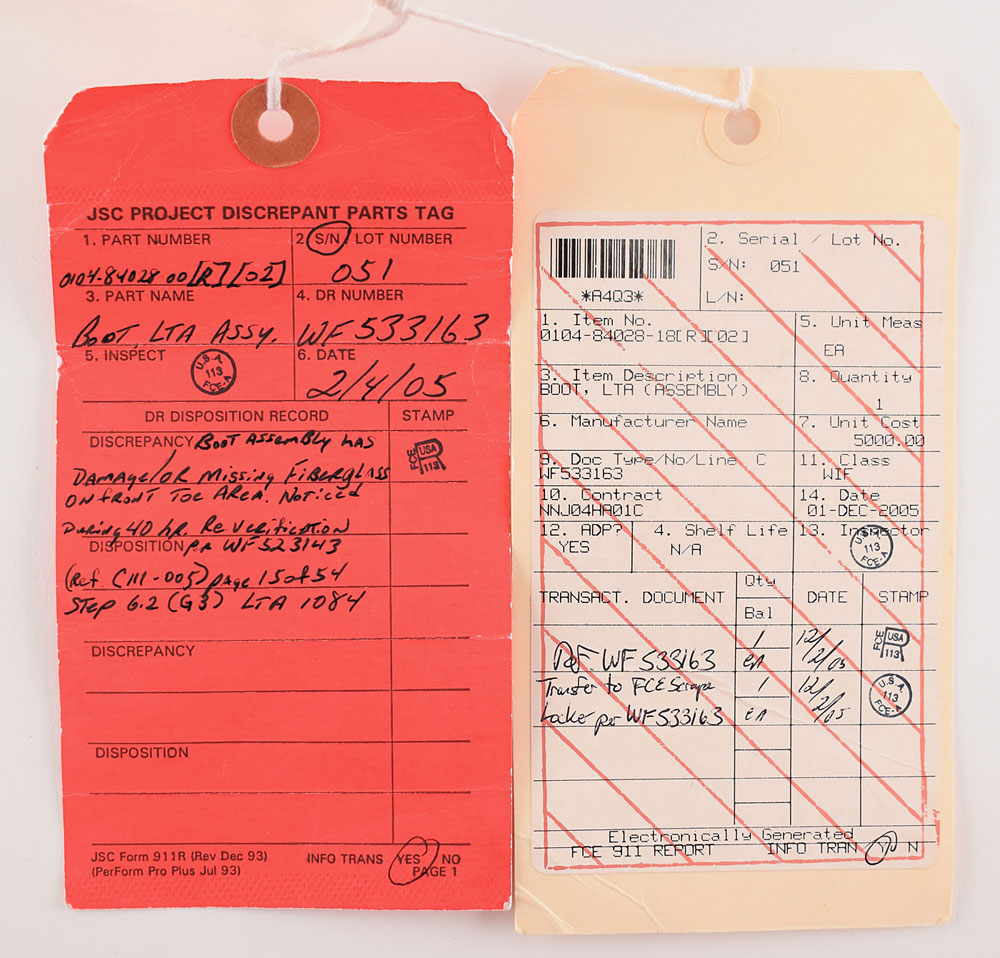 JSC PROJECT DISCREPANT PARTS TAG
1. PART NUMBER
0104-84028-00 [R][02]
2. S/N / LOT NUMBER
051
3. PART NAME
BOOT, LTA ASSY.
4. DR NUMBER
WF533163
5. INSPECT
U.S.A. 113 FCE-A
6. DATE
2/4/05
DR DISPOSITION RECORD
STAMP
DISCREPANCY BOOT ASSEMBLY HAS
DAMAGE/OR MISSING FIBERGLASS
ON FRONT TOE AREA. NOTICED
DURING 40 HR. RE VERIFICATION
FCE USA R 113
DISPOSITION per WF523143
(Ref. CM-005) page 15 of 54
STEP 6.2 (G3) LTA 1084
DISCREPANCY
DISPOSITION
JSC Form 911R (Rev Dec 93)
(PerForm Pro Plus Jul 93)
INFO TRANS YES NO
PAGE 1
*A4Q3*
2. Serial / Lot No.
S/N: 051
L/N:
1. Item No.
0104-84028-18[R][02]
5. Unit Meas
EA
3. Item Description
BOOT, LTA (ASSEMBLY)
8. Quantity
1
6. Manufacturer Name
7. Unit Cost
5000.00
9. Doc Type/No/Line C
WF533163
11. Class
WIF
10. Contract
NNJ04HA01C
14. Date
01-DEC-2005
12. ADP?
YES
4. Shelf Life
N/A
13. Inspector
U.S.A. 113 FCE-A
TRANSACT. DOCUMENT
Qty
Bal
DATE
STAMP
Ref. WF533163
1
EA
12/2/05
FCE USA R 113
Transfer to FCE Scrape
Locker per WF533163
1
EA
12/2/05
U.S.A. 113 FCE-A
Electronically Generated
FCE 911 REPORT INFO TRAN Y N